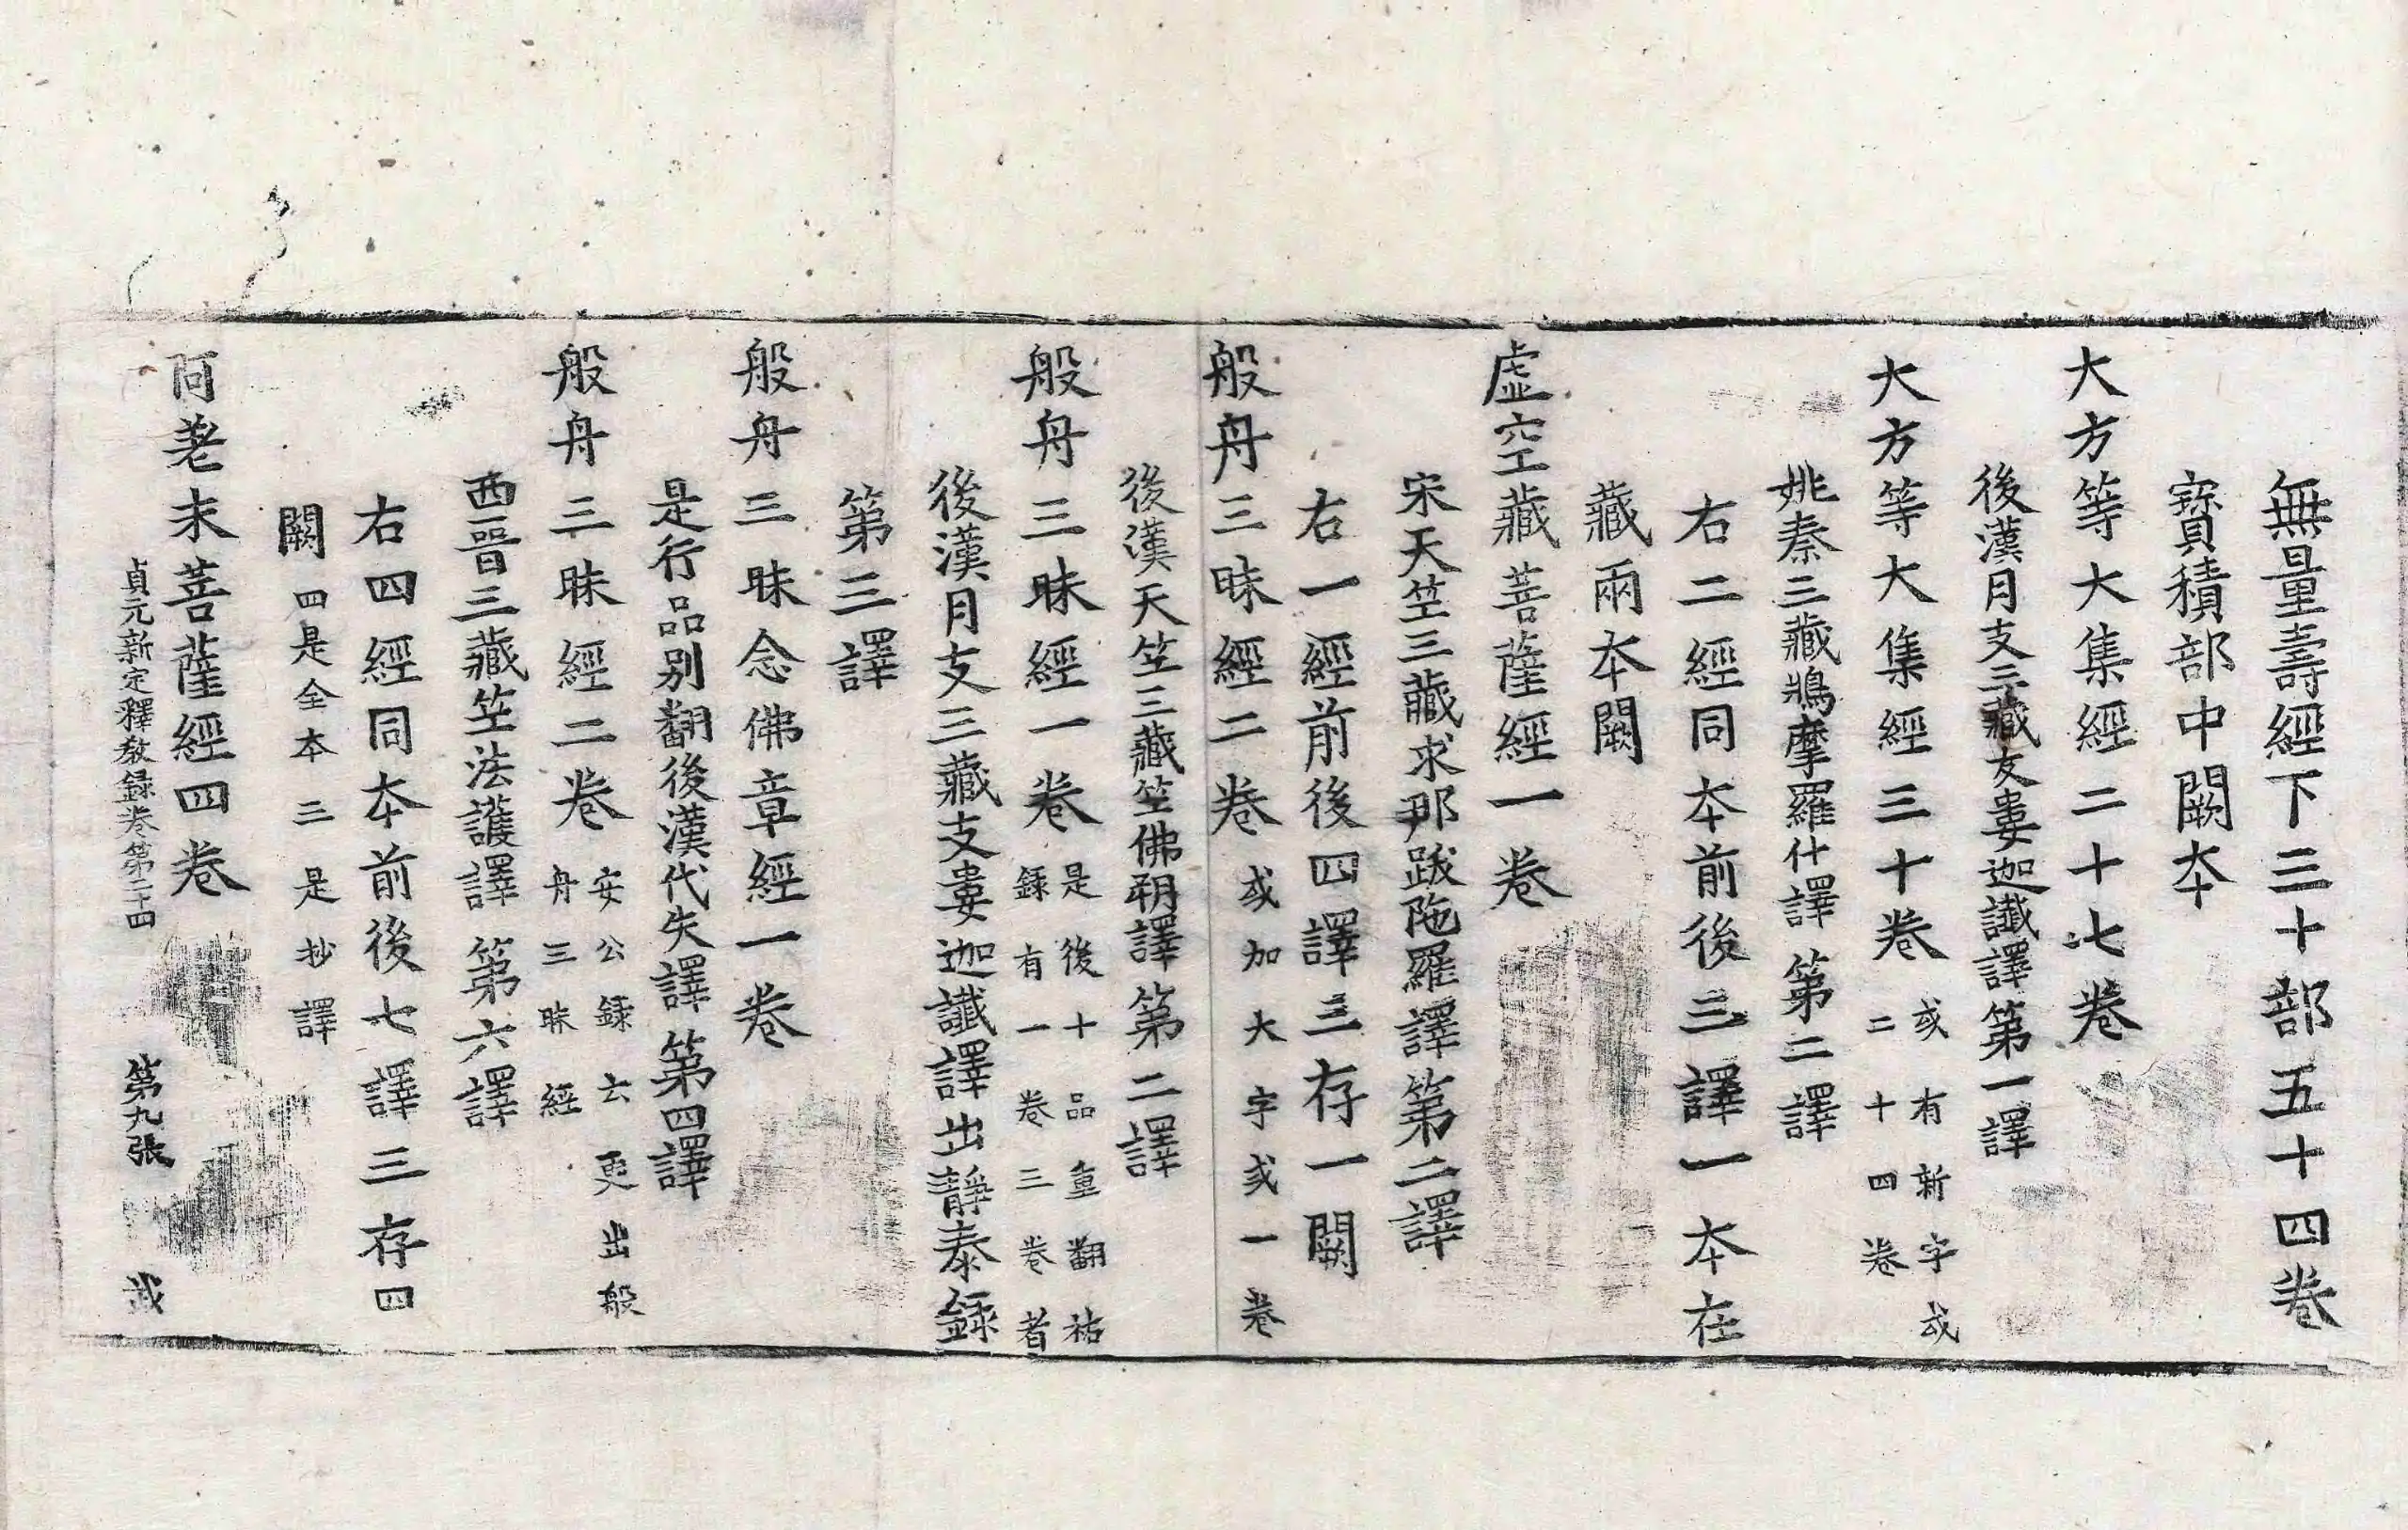 無量壽經下三十部五十四卷
寶積部中闕夲
大方等大集經二十七卷
後漢月支三藏支婁迦讖譯第一譯
大方等大集經三十卷 或有新字或二十四卷
姚秦三藏鳩摩羅什譯第二譯
右二經同夲前後三譯一夲在
藏兩夲闕
虛空藏菩薩經一卷
宋天竺三藏求那跋陁羅譯第二譯
右一經前後四譯三存一闕
般舟三昧經二卷 或加大字或一卷
後漢天竺三藏竺佛朔譯第二譯
般舟三昧經一卷 是後十品重翻祐錄有一卷三卷者
後漢月支三藏支婁迦讖譯出靜泰錄
第三譯
般舟三昧念佛章經一卷
是行品别翻後漢代失譯第四譯
般舟三昧經二卷 安公錄云更出般舟三昧經
西晉三藏竺法護譯第六譯
右四經同夲前後七譯三存四
闕 四是全本三是抄譯
阿差末菩薩經四卷
貞元新定釋教録卷第二十四 第九張